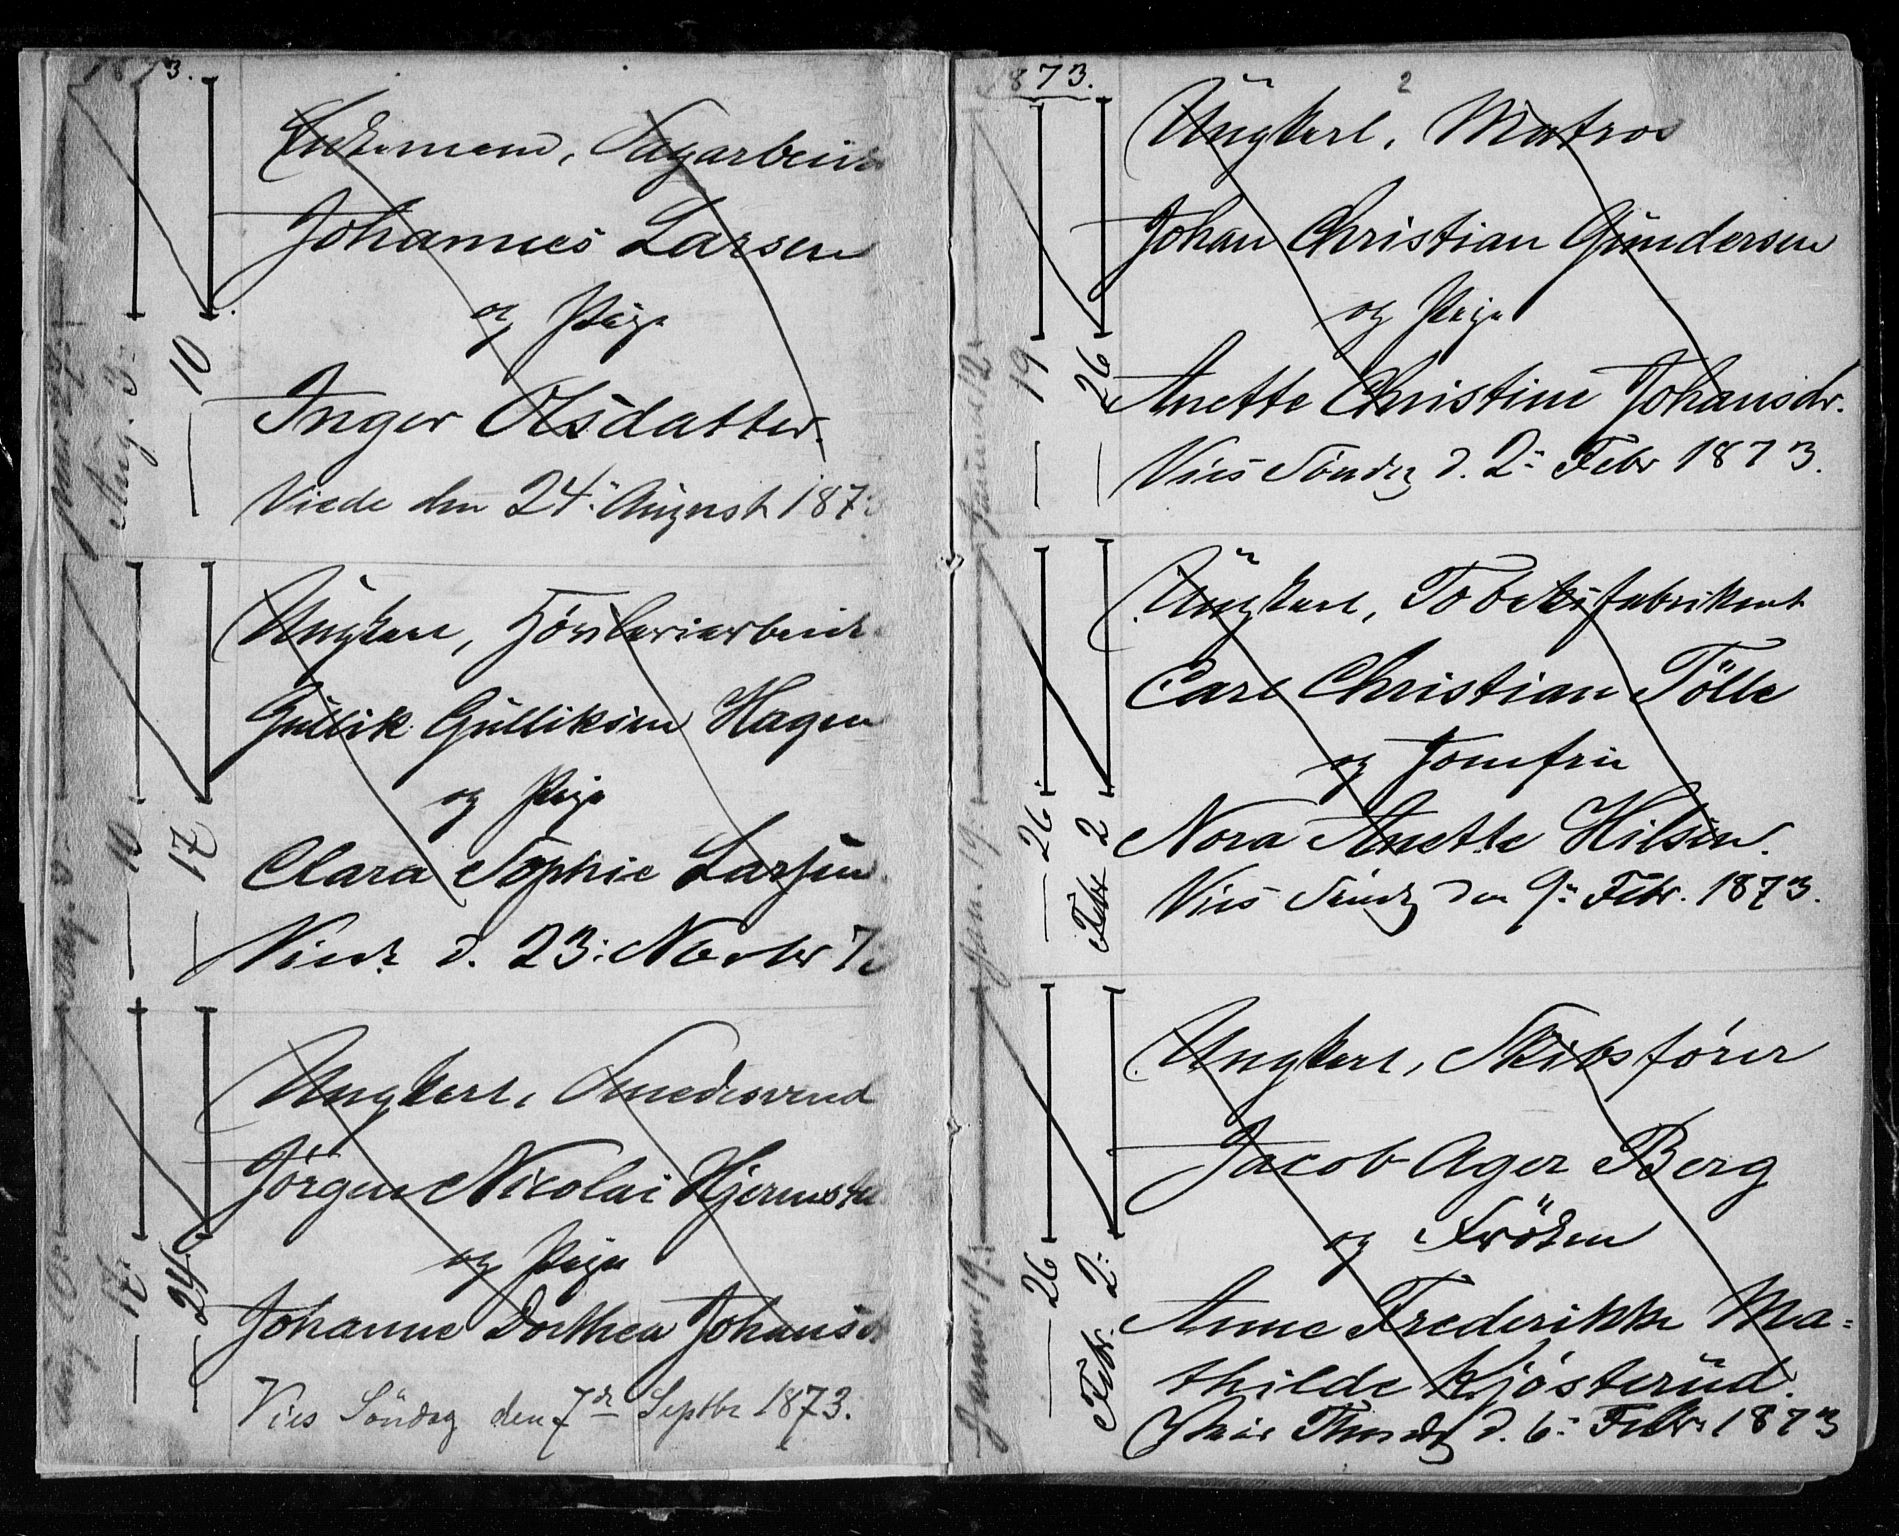 1873.
Enkemand, Sagarbeid
Johannes Larsen
og Pige
Inger Olsdatter.
Viede den 24: August 187
Aug. 3:
10
Ungkarl, Høvleriarbeid
Gullik Gulliksen Hagen
og Pige
Clara Sophie Larsen
Viede d. 23: Novbr 7
10
17
Ungkarl, Smedesvend
Jörgen Nicolai Hjermsta
og Pige
Johanne Dorthea Johansd
Vies Söndag den 7de Septbr 1873.
17
24
873.
2
Ungkarl, Matros
Johan Christian Gundersen
og Pige
Anette Christine Johansdr.
Vies Söndag d. 2: Febr 1873.
19
26
Ungkarl, Tobaksfabrikant
Carl Christian Tölle
og Jomfru
Nora Anette Hilsen.
Vies Söndag den 9: Febr. 1873.
Jan. 19:
26
Febr 2
Ungkarl, Skibsfører
Jacob Ager Berg
og Fröken
Anne Frederikke Ma=
thilde Kjøsterud.
Thorsdag d. 6: Febr. 1873
Januar 19:
26
Febr. 2: